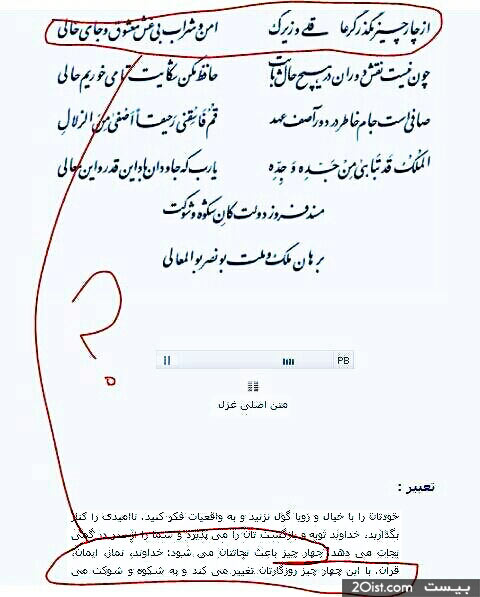 از چار چیز مگذر گر عاقلی و زیرک امن و شراب بی غش معشوق و جای خالی
چون نیست نقش دوران در هیچ حال ثابت حافظ مکن شکایت تا می خوریم حالی
صافی است جام خاطر در دور آصف عهد قم فاسقنی رحیقا اصفی من الزلال
الملک قد تباهی من جده و جده یارب که جاودان باد این قدر و این معالی
مسند فروز دولت کان شکوه و شوکت
برهان ملک و ملت بونصر بوالمعالی
?
PB
متن اصلی غزل
تعبیر :
خودتان را با خیال و رویا گول نزنید و به واقعیات فکر کنید. ناامیدی را کنار
بگذارید. خداوند توبه و بازگشت تان را می پذیرد و شما را از
نجات می دهد. چهار چیز باعث نجاتتان می شود: خداوند، نماز، ایمان،
قرآن. با این چهار چیز روزگارتان تغییر می کند و به شکوه و شوکت می
بیست 20ist.com